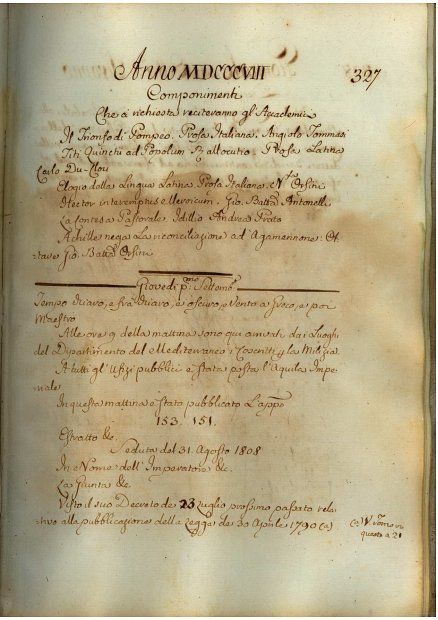 Anno MDCCCVIII
327
Componimenti
Che a richiesta reciteranno gl'Accademici
Il Trionfo di Pompeo. Prosa Italiana. Angiolo Tommasi
Titi Quinctii ad Populum Allocutio. Prosa Latina
Carlo Du-Clou
Elogio della Lingua Latina Prosa Italiana. Orsini
Hector interemptus Gio. Batta Antonelli
La Contesa Pastorale. Idillio Andrea Prato
Achille nega la riconciliazione ad Agamennone. Ot-
tave Gio. Batta Orsini
Giovedi pmo Settembe
Tempo chiaro, e fra chiaro, e oscuro, e vento a Greco, e poi
Maestro
Alle ore 9 della mattina sono qui arrivati dai Luoghi
del Dipartimento del Mediterraneo i Coscritti p la Milizia.
A tutti gl'Ufizi pubblici è stata posta l'Aquila Impe-
riale
In questa mattina è stato pubblicato L'appo
153. 151.
Estratto &c.
Seduta del 31. Agosto 1808
In Nome dell'Imperatore &c.
La Giunta &c.
Visto il suo Decreto de 23 Luglio prossimo passato rela-
tivo alla pubblicazione della Legge de 30 Aprile 1790 (a)
(a) V Tom
questo a 21